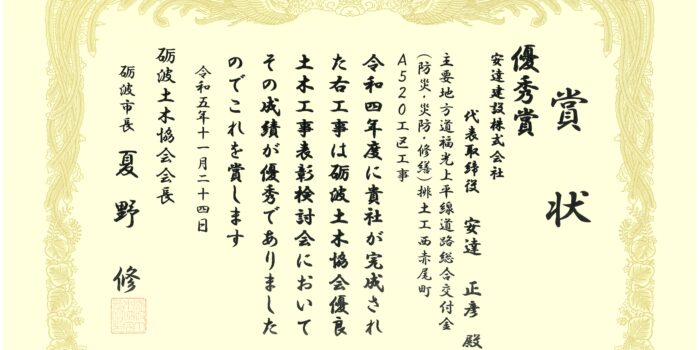 賞状
優秀賞
安達建設株式会社
代表取締役 安達 正彦 殿
主要地方道福光上平線道路総合交付金
(防災・災防・修繕)排土工西赤尾町
A520工区工事
令和四年度に貴社が完成され
た右工事は砺波土木協会優良
土木工事表彰検討会において
その成績が優秀でありました
のでこれを賞します
令和五年十一月二十四日
砺波土木協会会長
砺波市長 夏野 修